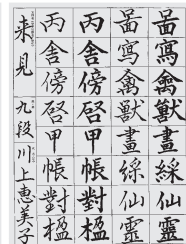 啚寫禽獸畫綵仙靈
啚寫禽獸畫綵仙靈
丙舍傍啓甲帳對楹
丙舍傍啓甲帳對楹
来見 九段 川上惠美子